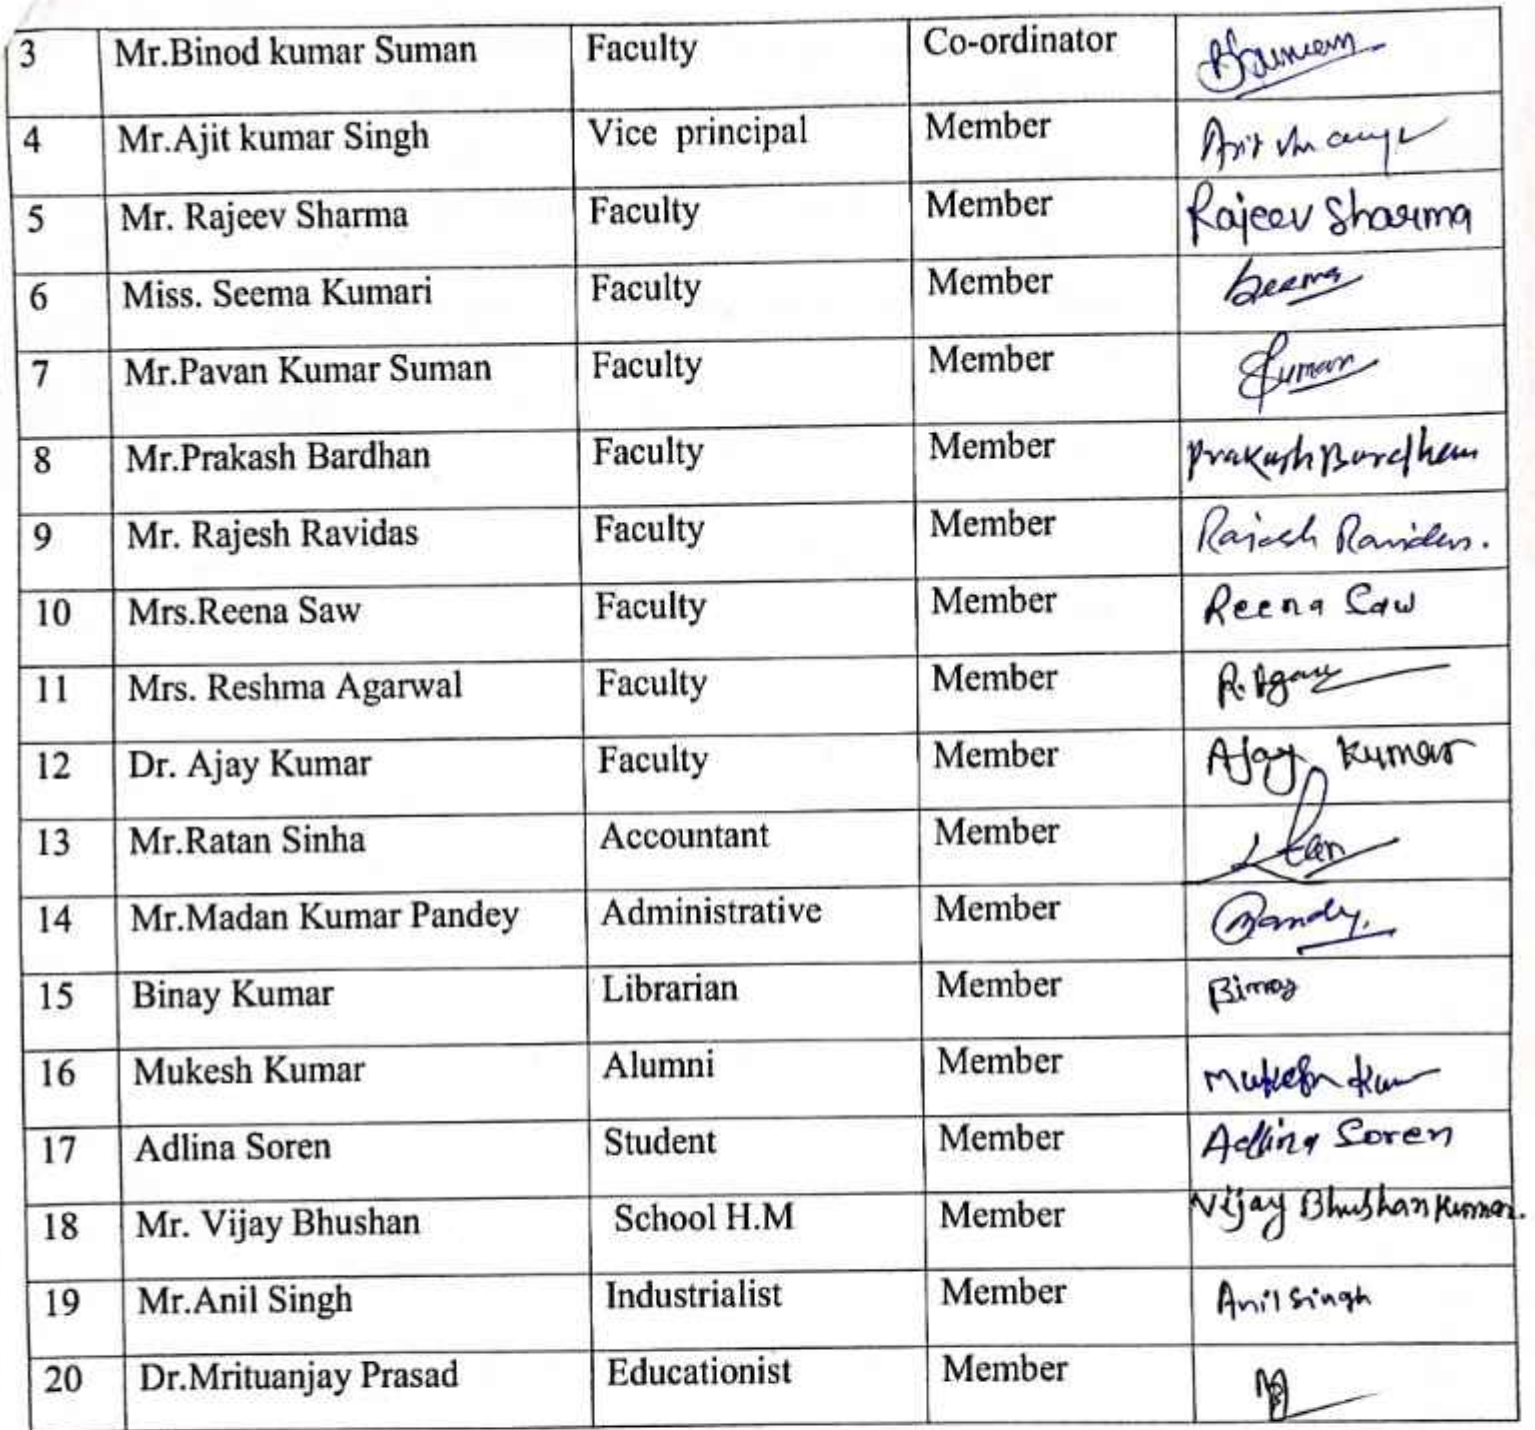 3 Mr.Binod kumar Suman Faculty Co-ordinator
4 Mr.Ajit kumar Singh Vice principal Member
5 Mr. Rajeev Sharma Faculty Member Rajeev Sharma
6 Miss. Seema Kumari Faculty Member Seema
7 Mr.Pavan Kumar Suman Faculty Member
8 Mr.Prakash Bardhan Faculty Member Prakash Bardhan
9 Mr. Rajesh Ravidas Faculty Member Rajesh Ravidas.
10 Mrs.Reena Saw Faculty Member Reena Saw
11 Mrs. Reshma Agarwal Faculty Member
12 Dr. Ajay Kumar Faculty Member Ajay Kumar
13 Mr.Ratan Sinha Accountant Member
14 Mr.Madan Kumar Pandey Administrative Member
15 Binay Kumar Librarian Member Binay
16 Mukesh Kumar Alumni Member Mukesh
17 Adlina Soren Student Member Adlina Soren
18 Mr. Vijay Bhushan School H.M Member Vijay Bhushan Kumar.
19 Mr.Anil Singh Industrialist Member Anil Singh
20 Dr.Mrituanjay Prasad Educationist Member